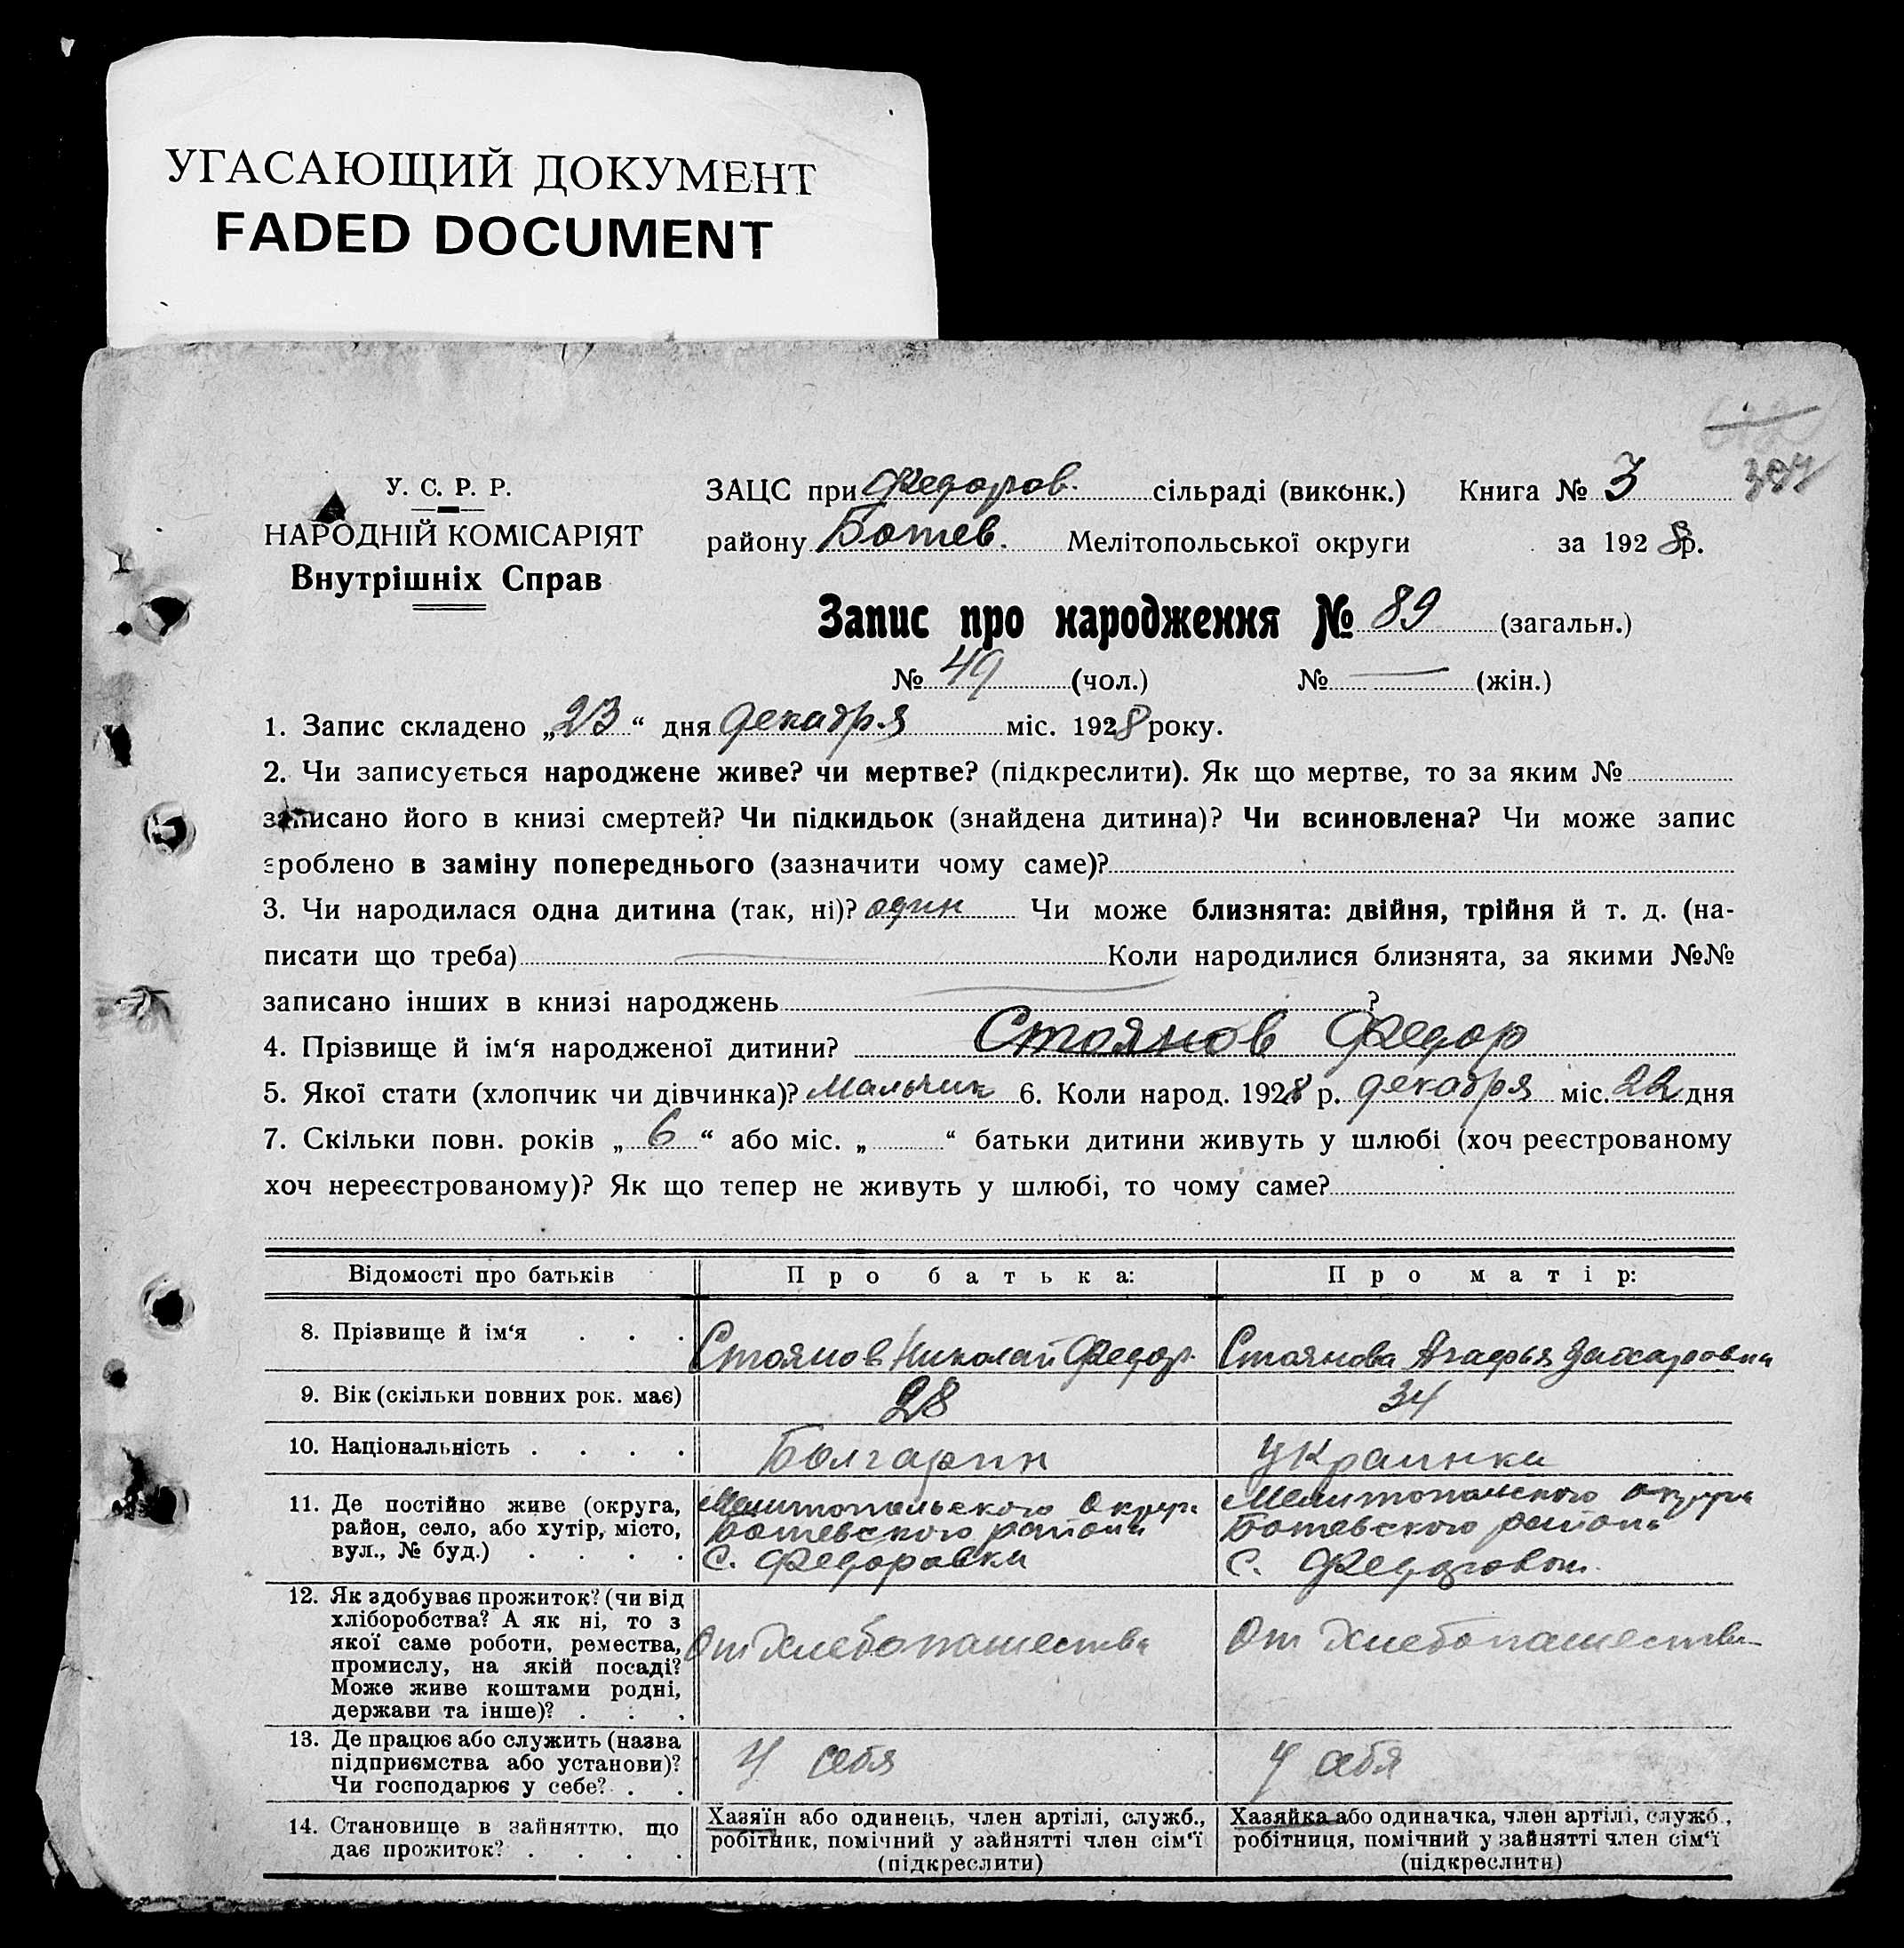 УГАСАЮЩИЙ ДОКУМЕНТ
FADED DOCUMENT
397
У. С. Р. Р.
НАРОДНІЙ КОМІСАРІЯТ
Внутрішніх Справ
ЗАЦС при Федоров. сільраді (виконк.) Книга № 3
району Ботев. Мелітопольської округи за 1928 р.
Запис про народження № 89 (загальн.)
№ 49 (чол.) № — (жін.)
1. Запис складено „23“ дня декабря міс. 1928 року.
2. Чи записується народжене живе? чи мертве? (підкреслити). Як що мертве, то за яким №
записано його в книзі смертей? Чи підкидьок (знайдена дитина)? Чи всиновлена? Чи може запис
зроблено в заміну попереднього (зазначити чому саме)?
3. Чи народилася одна дитина (так, ні)? один Чи може близнята: двійня, трійня й т. д. (на-
писати що треба) — Коли народилися близнята, за якими №№
записано інших в книзі народжень — ?
4. Прізвище й ім‘я народженої дитини? Стоянов Федор
5. Якої стати (хлопчик чи дівчинка)? Мальчик 6. Коли народ. 1928 р. декабря міс. 22 дня
7. Скільки повн. років „ 6 “ або міс. „ “ батьки дитини живуть у шлюбі (хоч реєстрованому
хоч нереєстрованому)? Як що тепер не живуть у шлюбі, то чому саме?
Відомості про батьків Про батька: Про матір:
8. Прізвище й ім‘я . . . Стоянов Николай Федор. Стоянова Агафья Захаровна
9. Вік (скільки повних рок. має) 28 34
10. Національність . . . . Болгарин Украинка
11. Де постійно живе (округа,
район, село, або хутір, місто,
вул., № буд.) . . . .
Мелитопольского Округа
Ботевского района
С. Федоровка
Мелитопольского Округа
Ботевского района
С. Федоровки.
12. Як здобуває прожиток? (чи від
хліборобства? А як ні, то з
якої саме роботи, ремества,
промислу, на якій посаді?
Може живе коштами родні,
держави та інше)? . . .
От Хлебопашества
От Хлебопашества
13. Де працює або служить (назва
підприємства або установи)?
Чи господарює у себе? . .
У себя
У себя
14. Становище в зайняттю, що
дає прожиток? . . . .
Хазяїн або одинець, член артілі, служб.,
робітник, помічний у зайнятті член сім‘ї
(підкреслити)
Хазяйка або одиначка, член артілі, служб.,
робітниця, помічний у зайнятті член сім‘ї
(підкреслити)